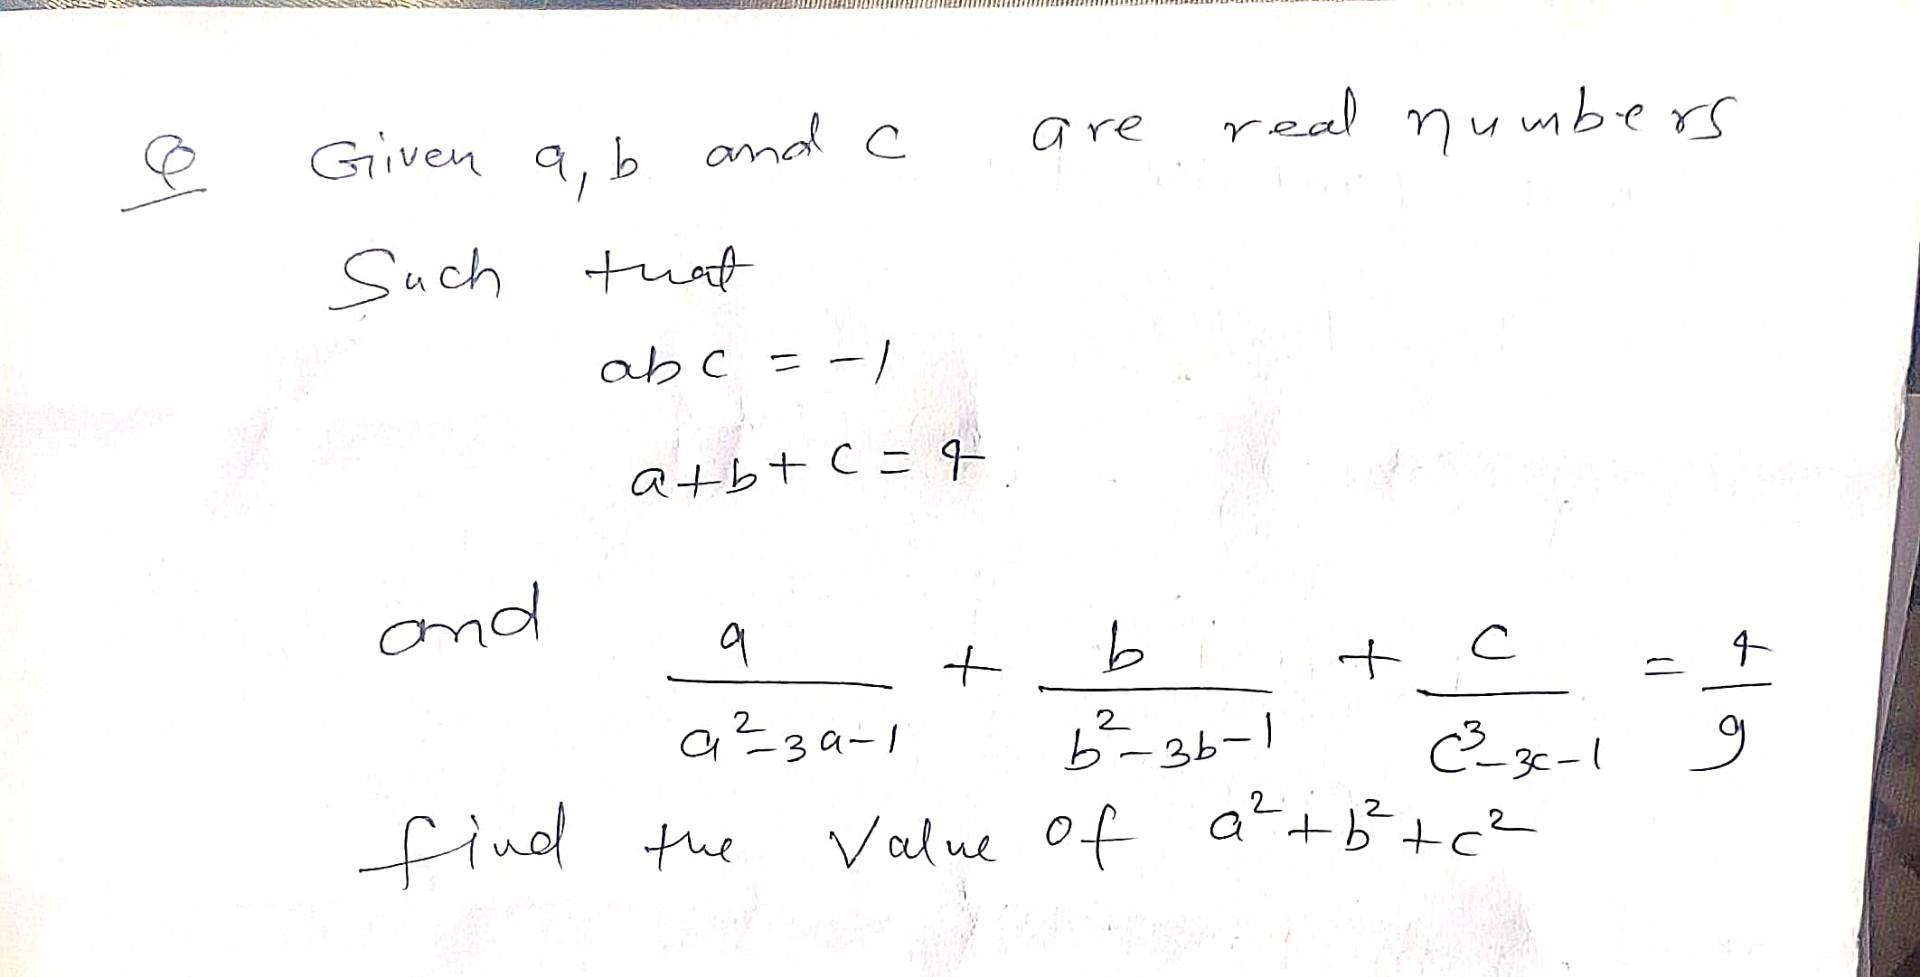 Q Given a, b and c are real numbers
Such that
abc = -1
a+b+c = 4
and a/(a²-3a-1) + b/(b²-3b-1) + c/(c³-3c-1) = 4/9
find the value of a²+b²+c²